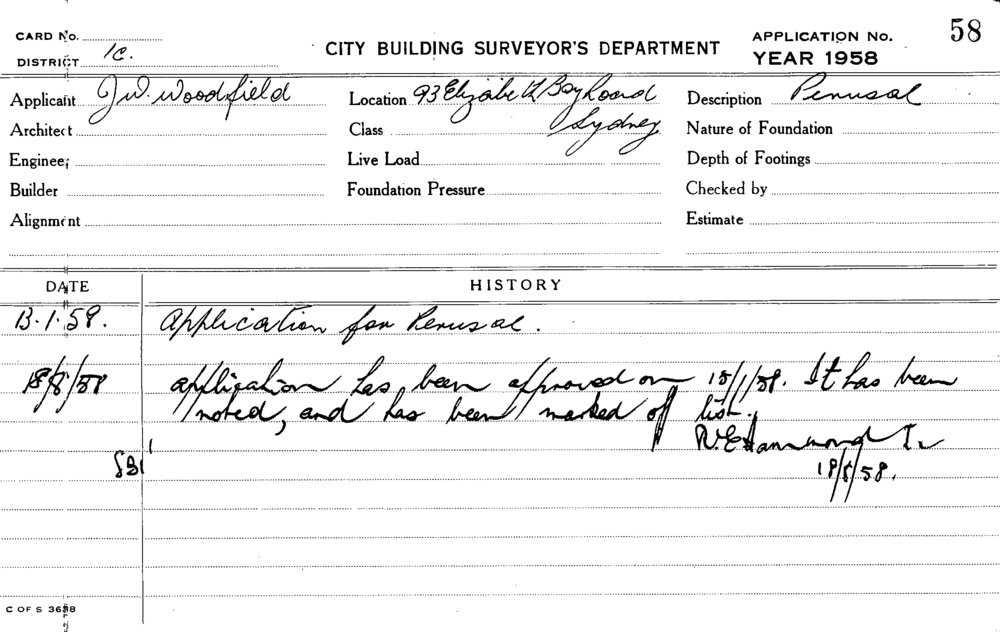 CARD No.
DISTRICT 1C.
CITY BUILDING SURVEYOR'S DEPARTMENT
APPLICATION No. 58
YEAR 1958
Applicant J.W. Woodfield Location 93 Elizabeth Bay Road Description Perusal
Sydney
Architect Class Nature of Foundation
Engineer Live Load Depth of Footings
Builder Foundation Pressure Checked by
Alignment Estimate
DATE HISTORY
13.1.58. Application for Perusal.
18/8/58 application has been approved on 15/1/58. It has been
noted, and has been marked off list.
R.E. Hammond
18/8/58.
C OF S 3658